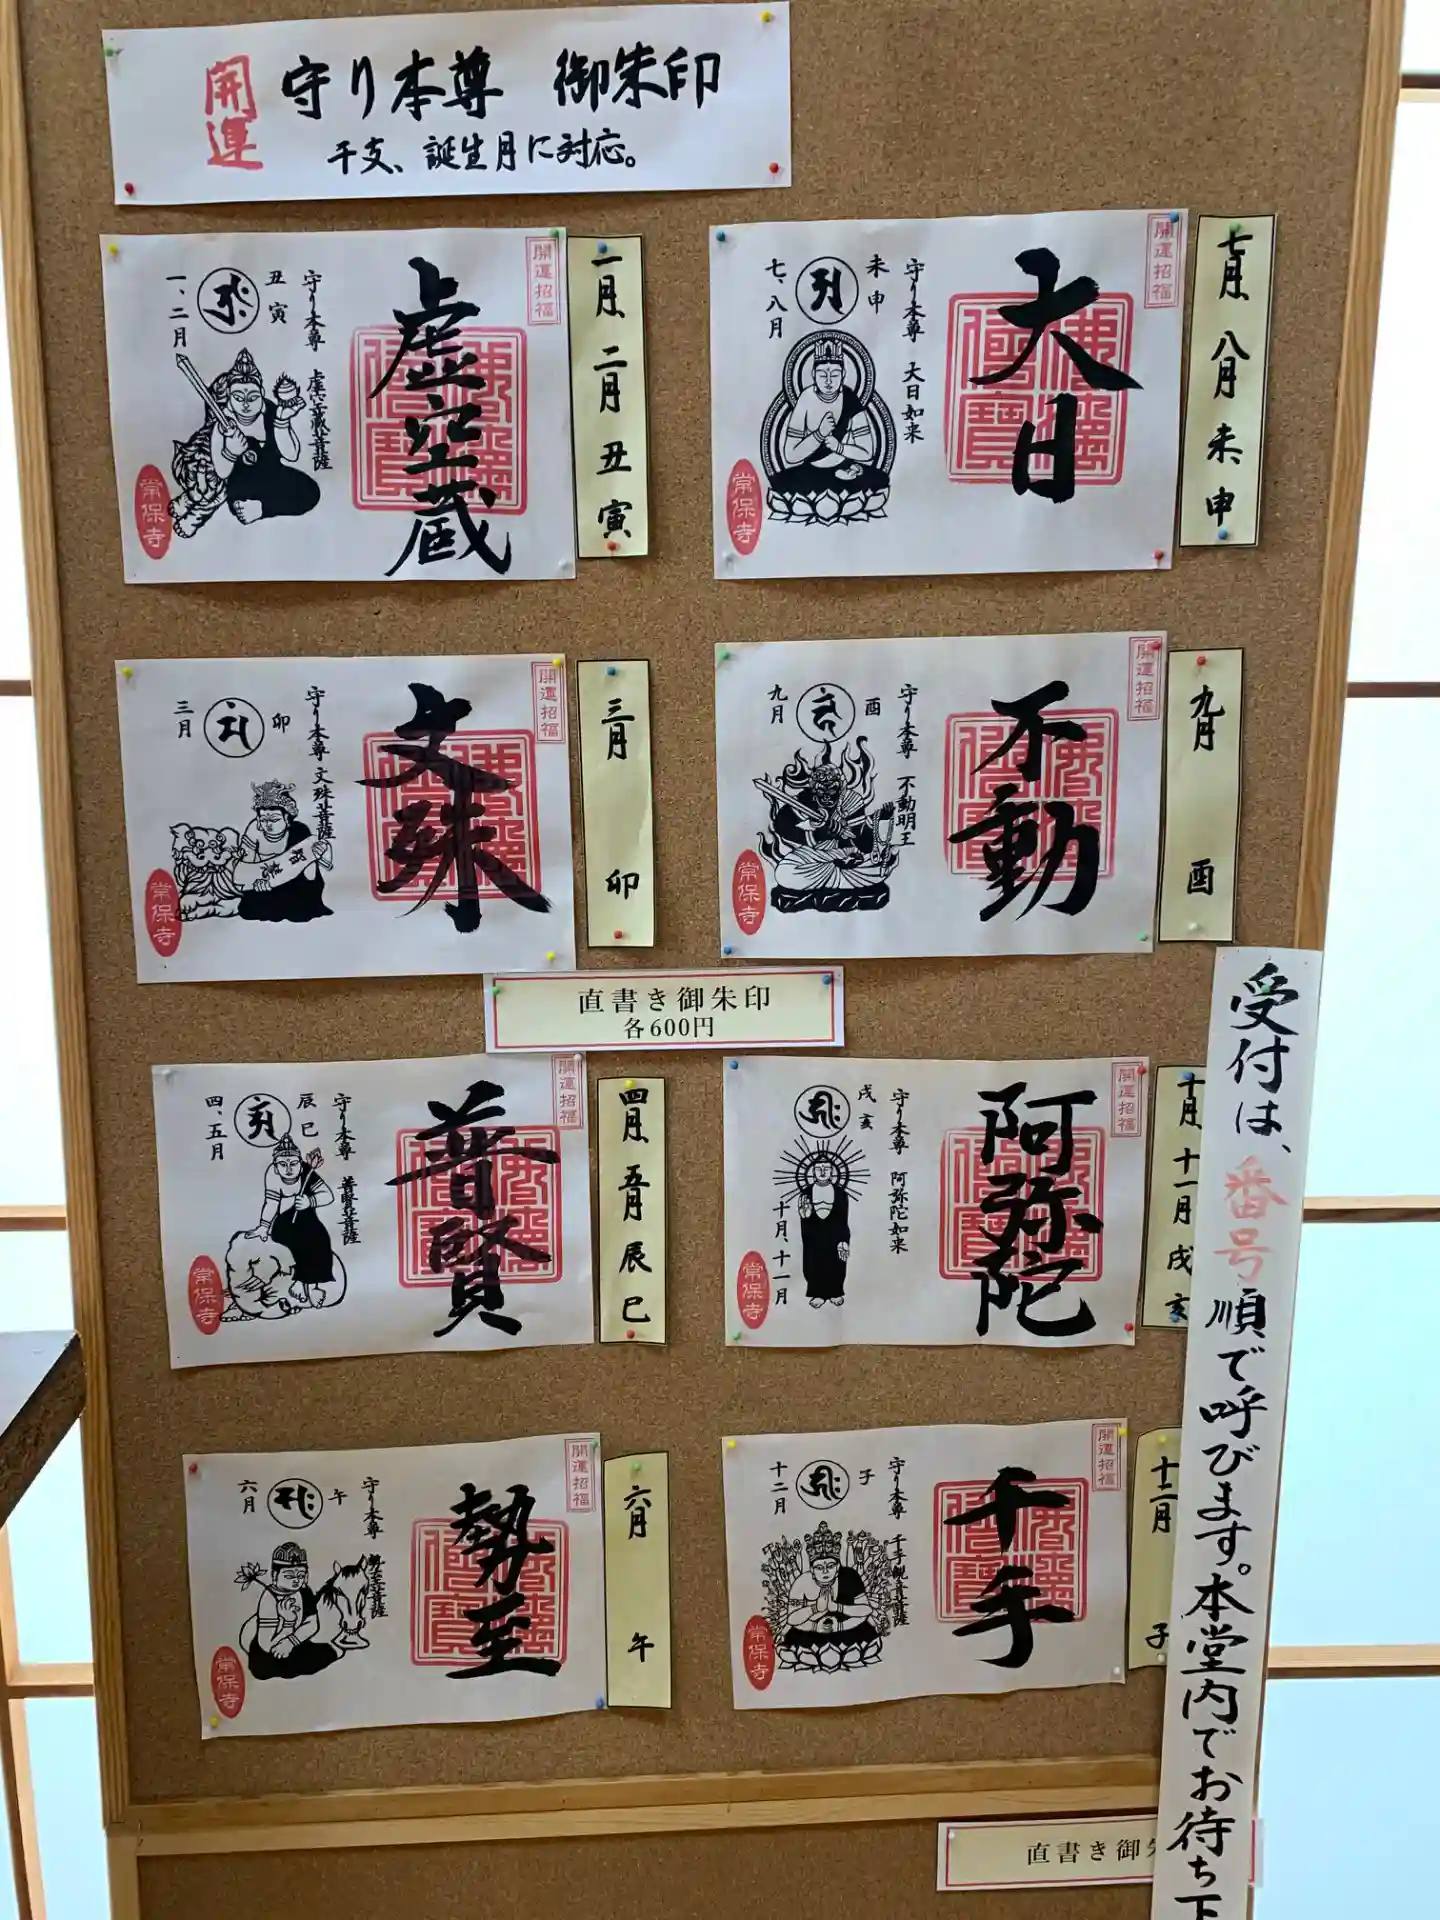 開運
守り本尊 御朱印
干支、誕生月に対応。
開運招福
虚空蔵
守り本尊 虚空蔵菩薩
丑寅
一、二月
常保寺
一月、二月 丑 寅
開運招福
大日
守り本尊 大日如来
未申
七、八月
常保寺
七月、八月 未、申
開運招福
文殊
守り本尊 文殊菩薩
卯
三月
常保寺
三月 卯
開運招福
不動
守り本尊 不動明王
酉
九月
常保寺
九月 酉
直書き御朱印
各600円
開運招福
普賢
守り本尊 普賢菩薩
辰巳
四、五月
常保寺
四月、五月 辰 巳
開運招福
阿弥陀
守り本尊 阿弥陀如来
戌亥
十月、十一月
常保寺
十月、十一月 戌 亥
開運招福
勢至
守り本尊 勢至菩薩
午
六月
常保寺
六月 午
開運招福
千手
守り本尊 千手観音菩薩
子
十二月
常保寺
十二月 子
受付は、番号順で呼びます。本堂内でお待ち下
直書き御朱